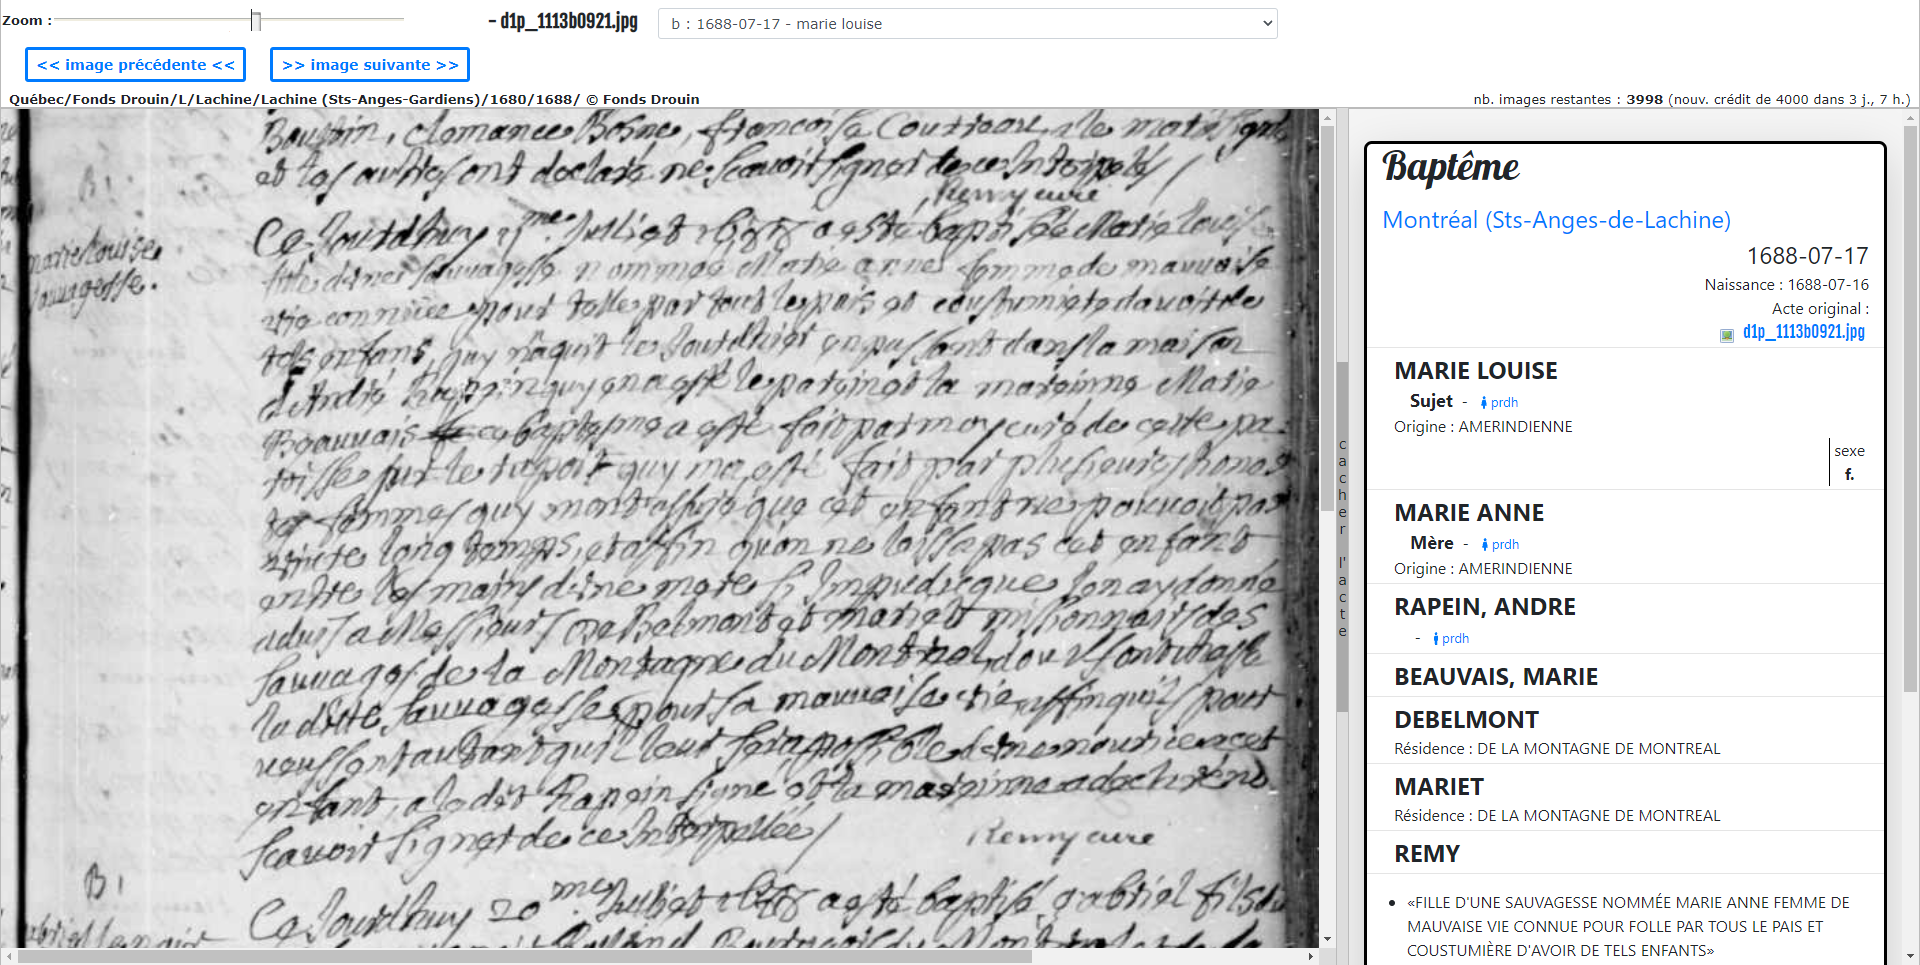 Zoom :
– d1p_1113b0921.jpg
b : 1688-07-17 - marie louise
<< image précédente <<
>> image suivante >>
Québec/Fonds Drouin/L/Lachine/Lachine (Sts-Anges-Gardiens)/1680/1688/ © Fonds Drouin
nb. images restantes : 3998 (nouv. crédit de 4000 dans 3 j., 7 h.)
et les autres ont declaré ne scavoir signer de ce Interpelés
Remy curé
marie louise
sauvagesse.
Ce Jourdhuy 17me Julliet 1688 a esté baptisée Marie louise
fille d'une sauvagesse nommée Marie anne femme de mauvaise
vie connüee pour folle par tout le pais et coustumiere d'avoir de
tels enfans, quy naquit le Jourdhier en passant dans la maison
d'André Rapein quy en a esté le parein et la mareinne Marie
Beauvais ce baptesme a esté fait par moy curé de cette pa-
roisse sur le raport quy m'a esté fait par plusieurs honnes
tes femmes quy m'ont assuré que cet enfant ne pouvoit pas
vivre long temps, et affin qu'on ne laissa pas cet enfant
entre les mains d'une mere si Impudicque J'en ay donné
advis a Messieurs De Belmont et Mariet missionnaires des
sauvages de la Montagne du Montreal, d'ou Ils ont chassé
la ditte sauvagesse pour sa mauvaise vie affin qu'ils pour
veussent autant qu'il leur sera possible d'une nourice a cet
enfant, a le dit Rapein signé et la mareinne a declaré ne
scavoir signer de ce Interpellée
Remy curé
B 1
Ce Jourdhuy 20me Julliet 1688 a esté baptisé gabriel fils du
cacher l'acte
Baptême
Montréal (Sts-Anges-de-Lachine)
1688-07-17
Naissance : 1688-07-16
Acte original :
d1p_1113b0921.jpg
MARIE LOUISE
Sujet - prdh
Origine : AMERINDIENNE
sexe
f.
MARIE ANNE
Mère - prdh
Origine : AMERINDIENNE
RAPEIN, ANDRE
- prdh
BEAUVAIS, MARIE
DEBELMONT
Résidence : DE LA MONTAGNE DE MONTREAL
MARIET
Résidence : DE LA MONTAGNE DE MONTREAL
REMY
• «FILLE D'UNE SAUVAGESSE NOMMÉE MARIE ANNE FEMME DE
MAUVAISE VIE CONNUE POUR FOLLE PAR TOUS LE PAIS ET
COUSTUMIÈRE D'AVOIR DE TELS ENFANTS»